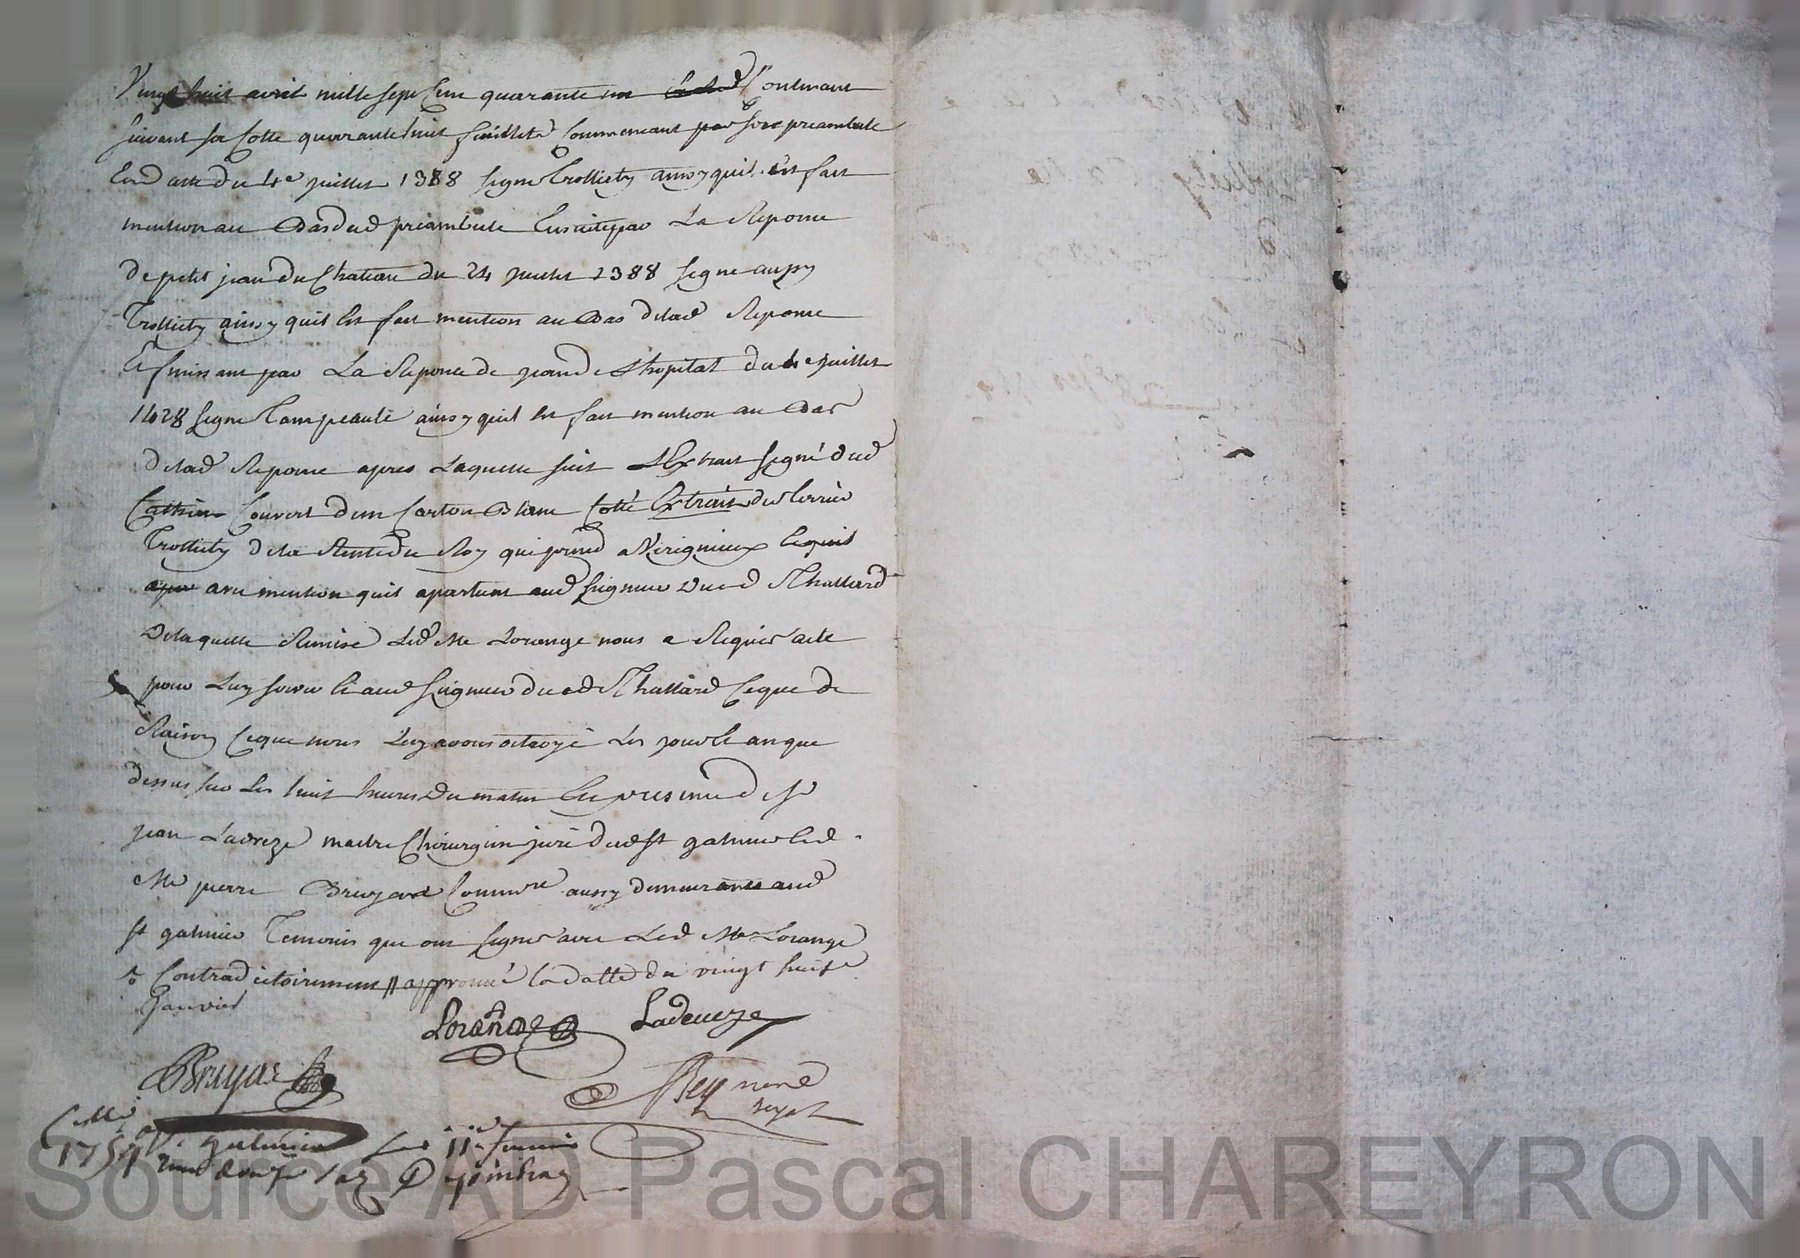 Vingt huit avril mille sept cent quarante un Contenant
suivant sa Cotte quarante huit feuillets Commencant par son preambule
En datte du 4e juillet 1388 signe Trolliety ainsy quil est fait
mention au Bas dud preambule Ensuitte par La Reponse
de petit jean du Chateau du 24 juillet 1388 signe aussy
Trolliety ainsy quil Est fait mention au Bas de lad Reponse
Et finissant par La Reponce de jean de L'hopital du 4e juillet
1428 signe ainsy quil est fait mention au Bas
de lad Reponse apres Laquelle suit L'Extrait signé dud
Couvert d'un Carton Blanc Cotté Extrait du Terrier
Trolliety de la Rente du Roy qui prend a Virignieux Lequel
avec mention quil apartient aud seigneur Dud Challard
De laquelle Remise Led Me Lorange nous a Requis acte
pour Luy servir Et aud seigneur dud Challard Ce que de
Raison Ce que nous Luy avons octroyé Les jour Et an que
dessus sur Les huit heures Du matin En presence de sr
jean Ladveze maitre Chirurgien juré dud st galmier Et de
Me pierre Bruyard Commre aussy demeurants aud
st galmier Temoins qui ont signes avec Led Me Lorange
Contradictoirement // approuvé la datte du vingt huit
Janvier
Lorange Ladeveze
Bruyas
Rey
not Royal
Collé a St galmier le 11e
1754 Reçu douze sols
Source AD Pascal CHAREYRON